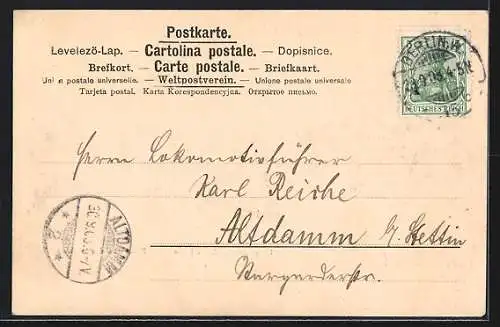 Postkarte.
Levelezö-Lap. — Cartolina postale. — Dopisnice.
Brefkort. — Carte postale. — Briefkaart.
Union postale universelle. — Weltpostverein. — Unione postale universale
Tarjeta postal. Karta Korespondencyjna. Открытое письмо.
BERLIN.W.
DEUTSCHES REICH
Herrn Lokomotivführer
Karl Reiche
Altdamm b/ Stettin
Stargarderstr.
ALTDAMM